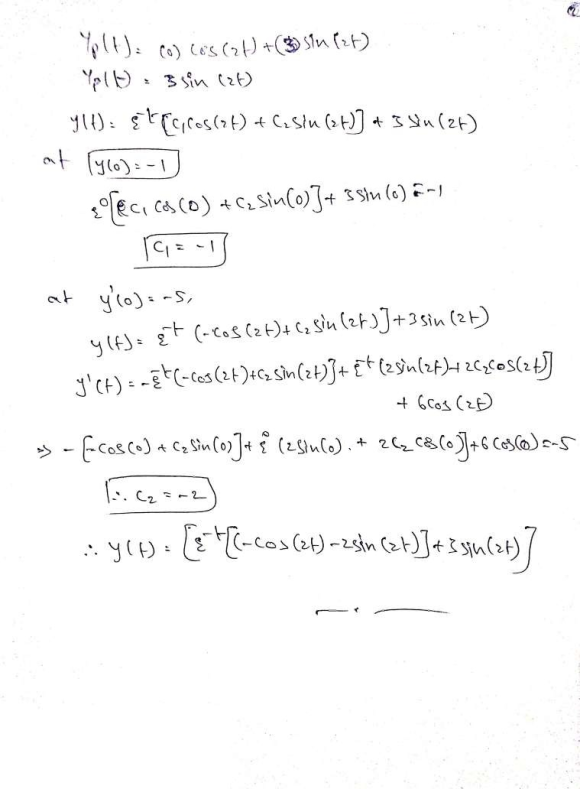 Yp(t) = (0) cos(2t) + (3) sin(2t)
Yp(t) = 3 sin (2t)
y(t) = e^-t [C1 cos(2t) + C2 sin(2t)] + 3 sin(2t)
at y(0) = -1
e^0 [C1 cos(0) + C2 sin(0)] + 3 sin(0) = -1
C1 = -1
at y'(0) = -5,
y(t) = e^-t (-cos(2t) + C2 sin(2t)] + 3 sin(2t)
y'(t) = -e^-t (-cos(2t) + C2 sin(2t)] + e^-t (2 sin(2t) + 2C2 cos(2t)]
+ 6 cos(2t)
⇒ - [-cos(0) + C2 sin(0)] + e^0 (2 sin(0) . + 2C2 cos(0)] + 6 cos(0) = -5
∴ C2 = -2
∴ y(t) = [e^-t [(-cos(2t) - 2 sin(2t)] + 3 sin(2t)]